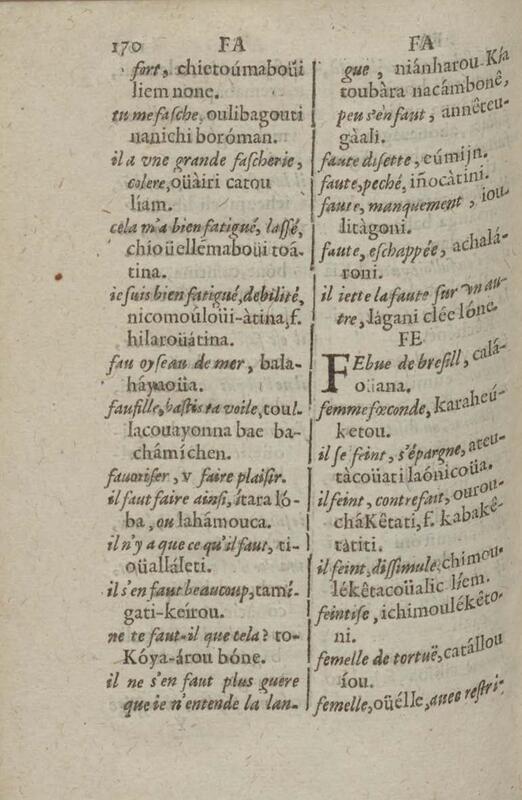 170 FA
fort, chietoúmaboüi
liem none.
tu me fasche, oulibagouti
nanichi boróman.
il a vne grande fascherie,
colere, oüàiri catou
líam.
cela m'a bien fatigué, lassé,
chioüellémaboüi toá-
tina.
ie suis bien fatigué, debilité,
nicomoúloüi-àtina, f.
hilaroüátina.
fau oyseau de mer, bala-
háyaoüa.
faufille, bastis ta voile, toul-
lacouayonna bae ba-
chámíchen.
fauoriser, v faire plaisir.
il faut faire ainsi, ítara ló-
ba, ou lahámouca.
il n'y a que ce qu'il faut, ti-
oüalláleti.
il s'en faut beaucoup, tamí-
gati-keírou.
ne te faut-il que tela? to-
Kóya-árou bóne.
il ne s'en faut plus guere
que ie n'entende la lan-
FA
gue, niánharou Kía
toubàra nacámbonê,
peu s'en faut, annêteu-
gàali.
faute disette, eúmijn.
faute, peché, iñocàtini.
faute, manquement, iou-
litàgoni.
faute, eschappée, achalá-
roni.
il iette la faute sur vn au-
tre, lágani clée lóne.
FE
FEbue de bresill, calá-
oüana.
femme fœconde, karaheú-
ketou.
il se feint, s'épargne, ateu-
tàcoüati laónicoüa.
il feint, contrefait, ourou-
cháKêtati, f. kabakê-
tàtiti.
il feint, dissimule, chimou-
lékêtacoüalic líem.
feintise, ichimoulékêto-
ni.
femelle de tortuë, catállou
íou.
femelle, oüélle, auec restri-